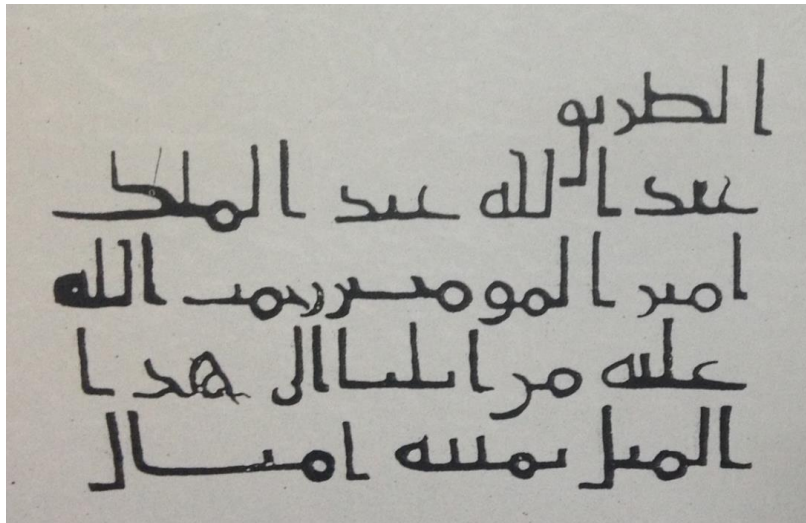 الطريق
عبد الله عبد الملك
امير المومنين رحمت الله
عليه من ايليا الى هدا
الميل ثمنيه اميال